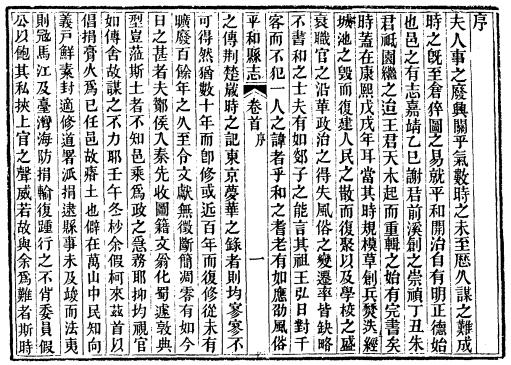 序
夫人事之廢興關乎氣數時之未至歷久謀之難成
時之旣至倉猝圖之易就平和開治自有明正德始
也邑之有志嘉靖乙巳謝君前溪創之崇頑丁丑朱
君祗園繼之迨王君天木起而重輯之始有完書矣
時蓋在康熙戊戌年耳當其時規模草創兵燹洗經
城池之毀而復建人民之散而復聚以及學校之盛
衰職官之沿革政治之得失風俗之變遷率皆缺略
不書和之士夫有如郯子之能言其祖王弘日對千
客而不犯一人之諱者乎和之耆老有如應劭風俗
平和縣志 卷首 序 一
之傳荆楚歲時之記東京夢華之錄者則均寥寥不
可得然猶數十年而卽修或近百年而復修從未有
曠廢百餘年之久至令文獻無徵斷簡凋零有如今
日之甚者夫鄭侯入秦先收圖籍文翁化蜀遂敦典
型豈蒞斯土者不知邑乘爲政之急務耶抑均視官
如傳舍故謀之不力耶壬午冬杪余假柯來茲首以
倡捐膏火爲已任邑故瘠土也僻在萬山中民知向
義戸鮮素封適修道署派捐逮縣事未及竣而法夷
則寇馬江及臺灣海防捐輸復踵行之不肖委員假
公以飽其私挾上官之聲威若故與余爲難者斯時